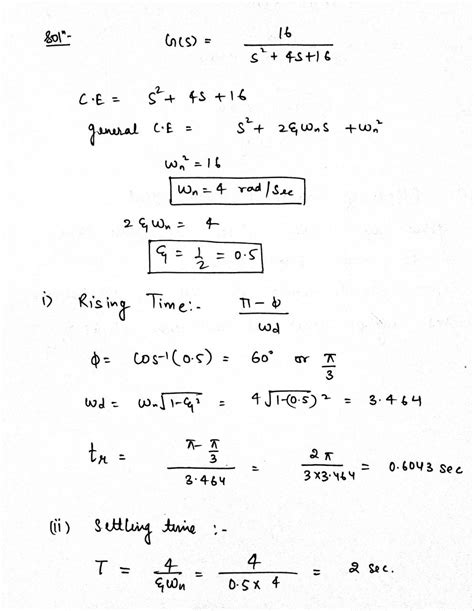 Solⁿ:- G(s) = 16 / s² + 4s + 16
C.E = s² + 4s + 16
general C.E = s² + 2ξωₙs + ωₙ²
ωₙ² = 16
ωₙ = 4 rad/sec
2ξωₙ = 4
ξ = 1/2 = 0.5
i) Rising Time:- π - ϕ / ωd
ϕ = cos⁻¹(0.5) = 60° or π/3
ωd = ωₙ√1-ξ² = 4√1-(0.5)² = 3.464
tr = π - π/3 / 3.464 = 2π / 3×3.464 = 0.6043 sec
(ii) Settling time :-
T = 4 / ξωₙ = 4 / 0.5×4 = 2 sec.